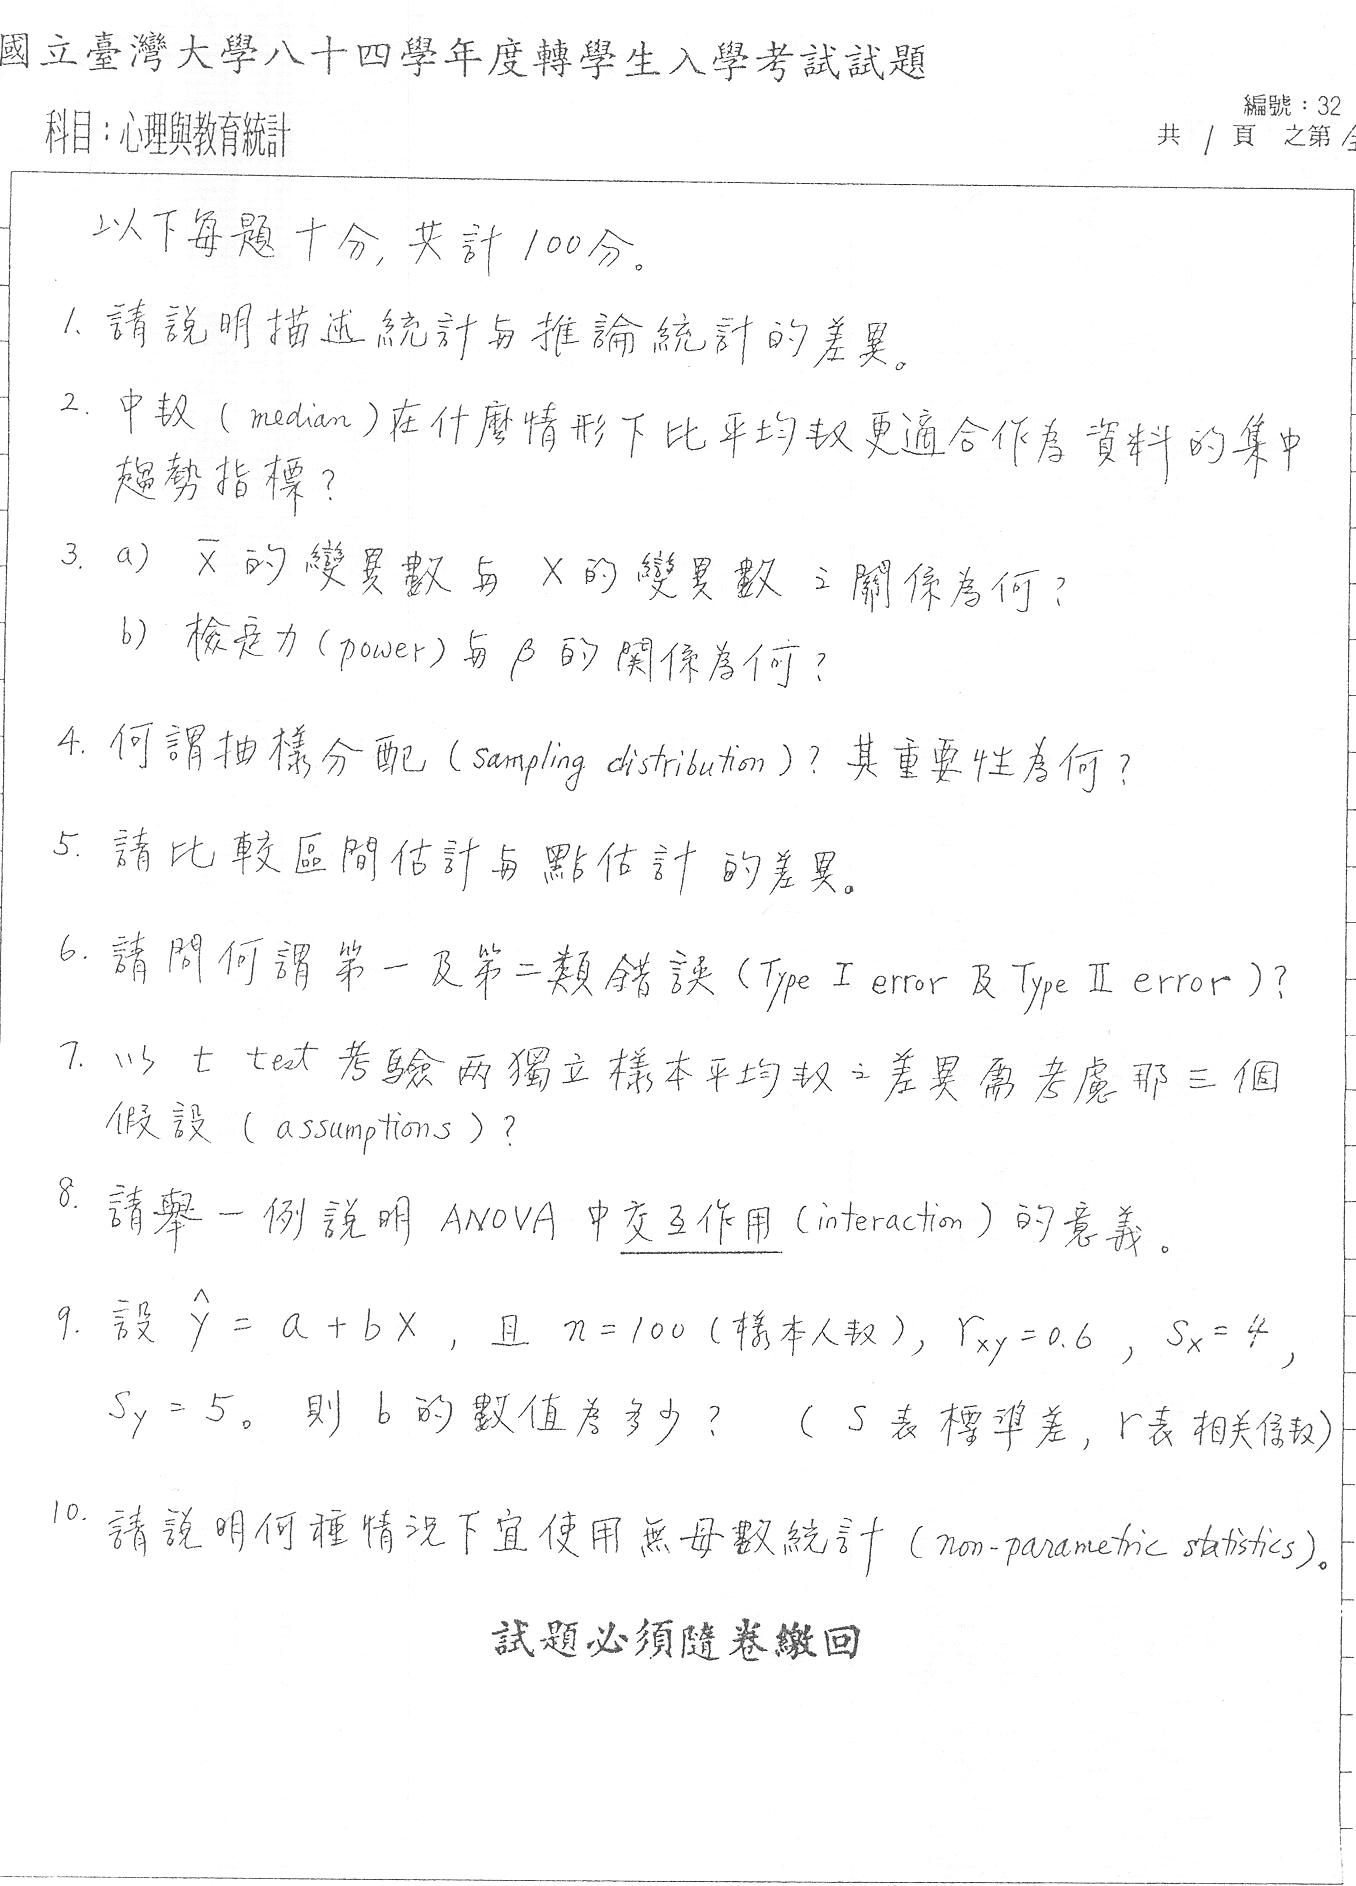 國立臺灣大學八十四學年度轉學生入學考試試題
科目：心理與教育統計
編號：32
共 1 頁 之第 全
以下每題十分, 共計100分。
1. 請說明描述統計与推論統計的差異。
2. 中数 (median) 在什麼情形下比平均数更適合作為資料的集中
趨勢指標?
3. a) X̄ 的變異數与 X 的變異數之關係為何?
b) 檢定力 (power) 与 β 的関係為何?
4. 何謂抽樣分配 (sampling distribution)? 其重要性為何?
5. 請比較區間估計与點估計的差異。
6. 請問何謂第一及第二類錯誤 (Type I error 及 Type II error)?
7. 以 t test 考驗两獨立樣本平均数之差異需考慮那三個
假設 (assumptions)?
8. 請舉一例說明 ANOVA 中交互作用 (interaction) 的意義。
9. 設 Ŷ = a + bX , 且 n=100 (樣本人数), rxy=0.6 , Sx=4 ,
Sy = 5。則 b 的數值為多少? (S 表標準差, r表相关係数)
10. 請說明何種情况下宜使用無母數統計 (non-parametric statistics)。
試題必須隨卷繳回